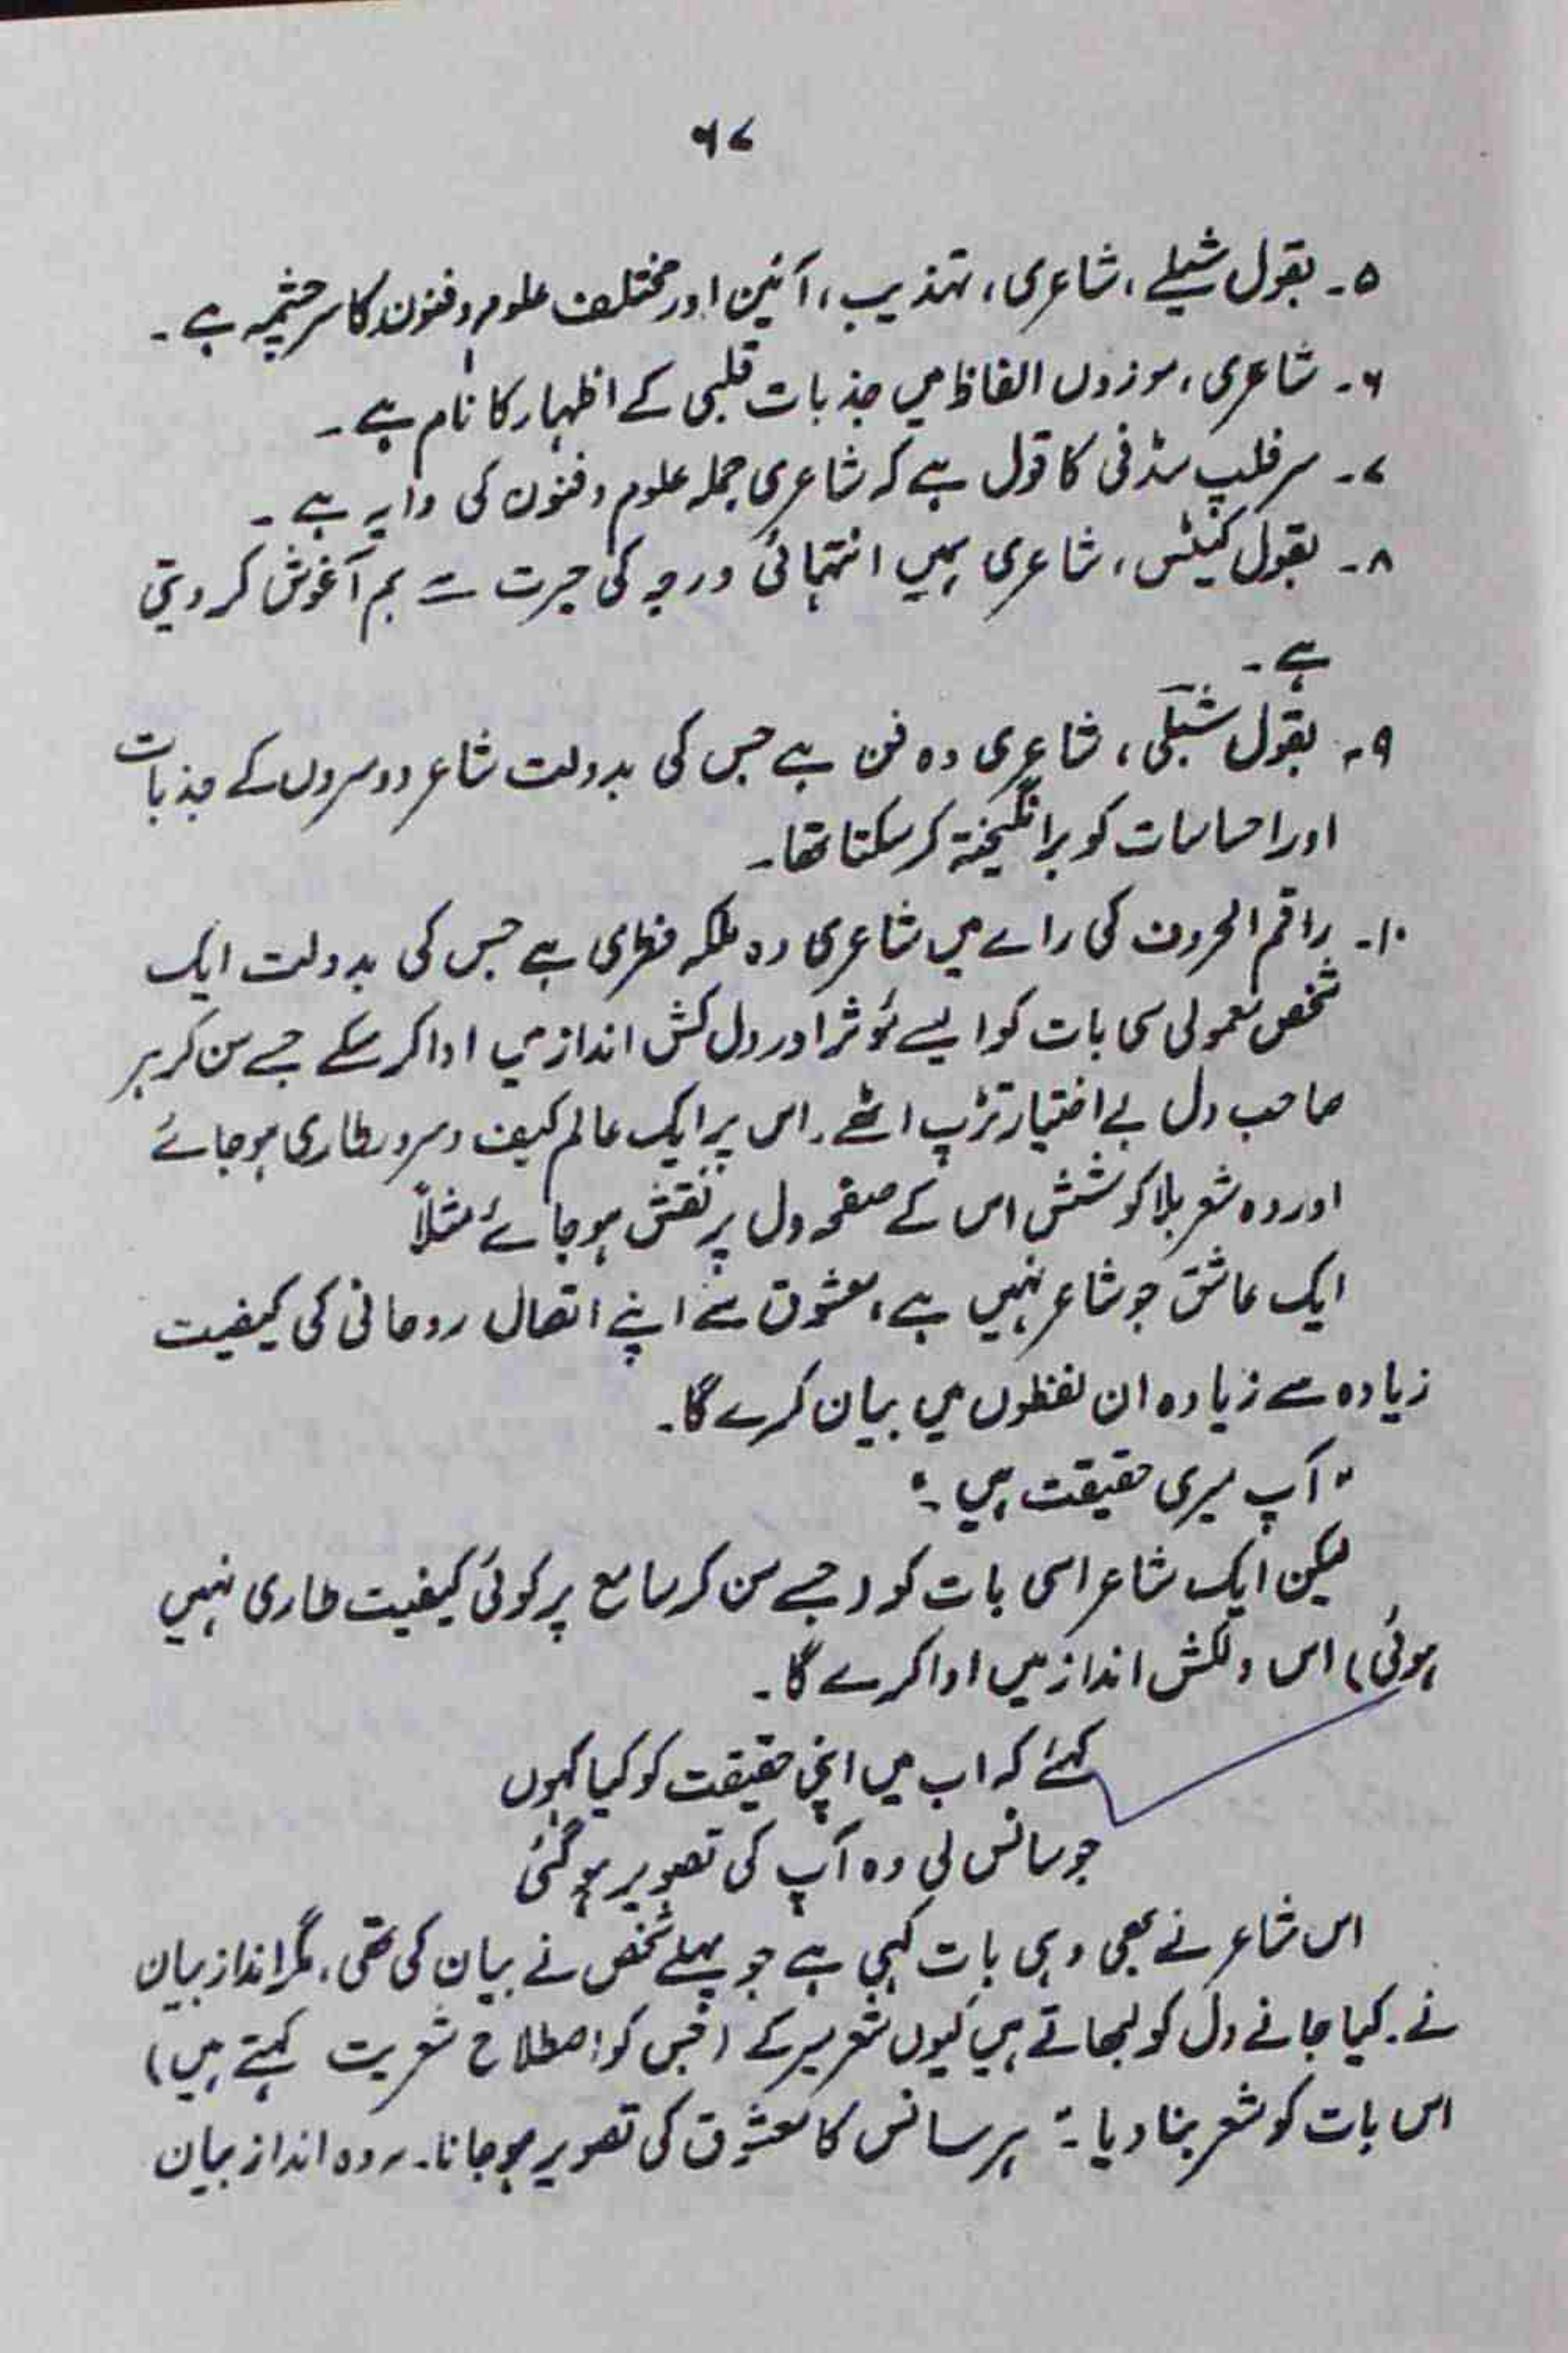 ۶۷
۵۔ بقول شیلے، شاعری، تہذیب، آئین اور مختلف علوم و فنون کا سرچشمہ ہے۔
۶۔ شاعری، موزوں الفاظ میں جذبات قلبی کے اظہار کا نام ہے۔
۷۔ سر فلپ سڈنی کا قول ہے کہ شاعری جملہ علوم و فنون کی دایہ ہے۔
۸۔ بقول کیٹس، شاعری ہمیں انتہائی درجہ کی حیرت سے ہم آغوش کر دیتی
ہے۔
۹۔ بقول شبلی، شاعری وہ فن ہے جس کی بدولت شاعر دوسروں کے جذبات
اور احساسات کو برانگیختہ کر سکتا تھا۔
۱۰۔ راقم الحروف کی راے میں شاعری وہ ملکہ فطری ہے جس کی بدولت ایک
شخص معمولی سی بات کو ایسے مؤثر اور دل کش انداز میں ادا کر سکے جسے سن کر ہر
صاحب دل بے اختیار تڑپ اٹھے۔ اس پر ایک عالم کیف و سرور طاری ہو جائے
اور وہ شعر بلا کوشش اس کے صفحہ دل پر نقش ہو جائے مثلاً
ایک عاشق جو شاعر نہیں ہے، معشوق سے اپنے اتصال روحانی کی کیفیت
زیادہ سے زیادہ ان لفظوں میں بیان کرے گا۔
"آپ میری حقیقت ہیں۔"
لیکن ایک شاعر اسی بات کو (جسے سن کر سامع پر کوئی کیفیت طاری نہیں
ہوئی) اس دلکش انداز میں ادا کرے گا۔
کہئے کہ اب میں اپنی حقیقت کو کیا کہوں
جو سانس لی وہ آپ کی تصویر ہو گئی
اس شاعر نے بھی وہی بات کہی ہے جو پہلے شخص نے بیان کی تھی، مگر انداز بیان
نے۔ کیا جانے دل کو لبھاتے ہیں کیوں شعر میر کے (جس کو اصطلاح شعریت کہتے ہیں)
اس بات کو شعر بنا دیا۔" ہر سانس کا معشوق کی تصویر ہو جانا۔ وہ انداز بیان